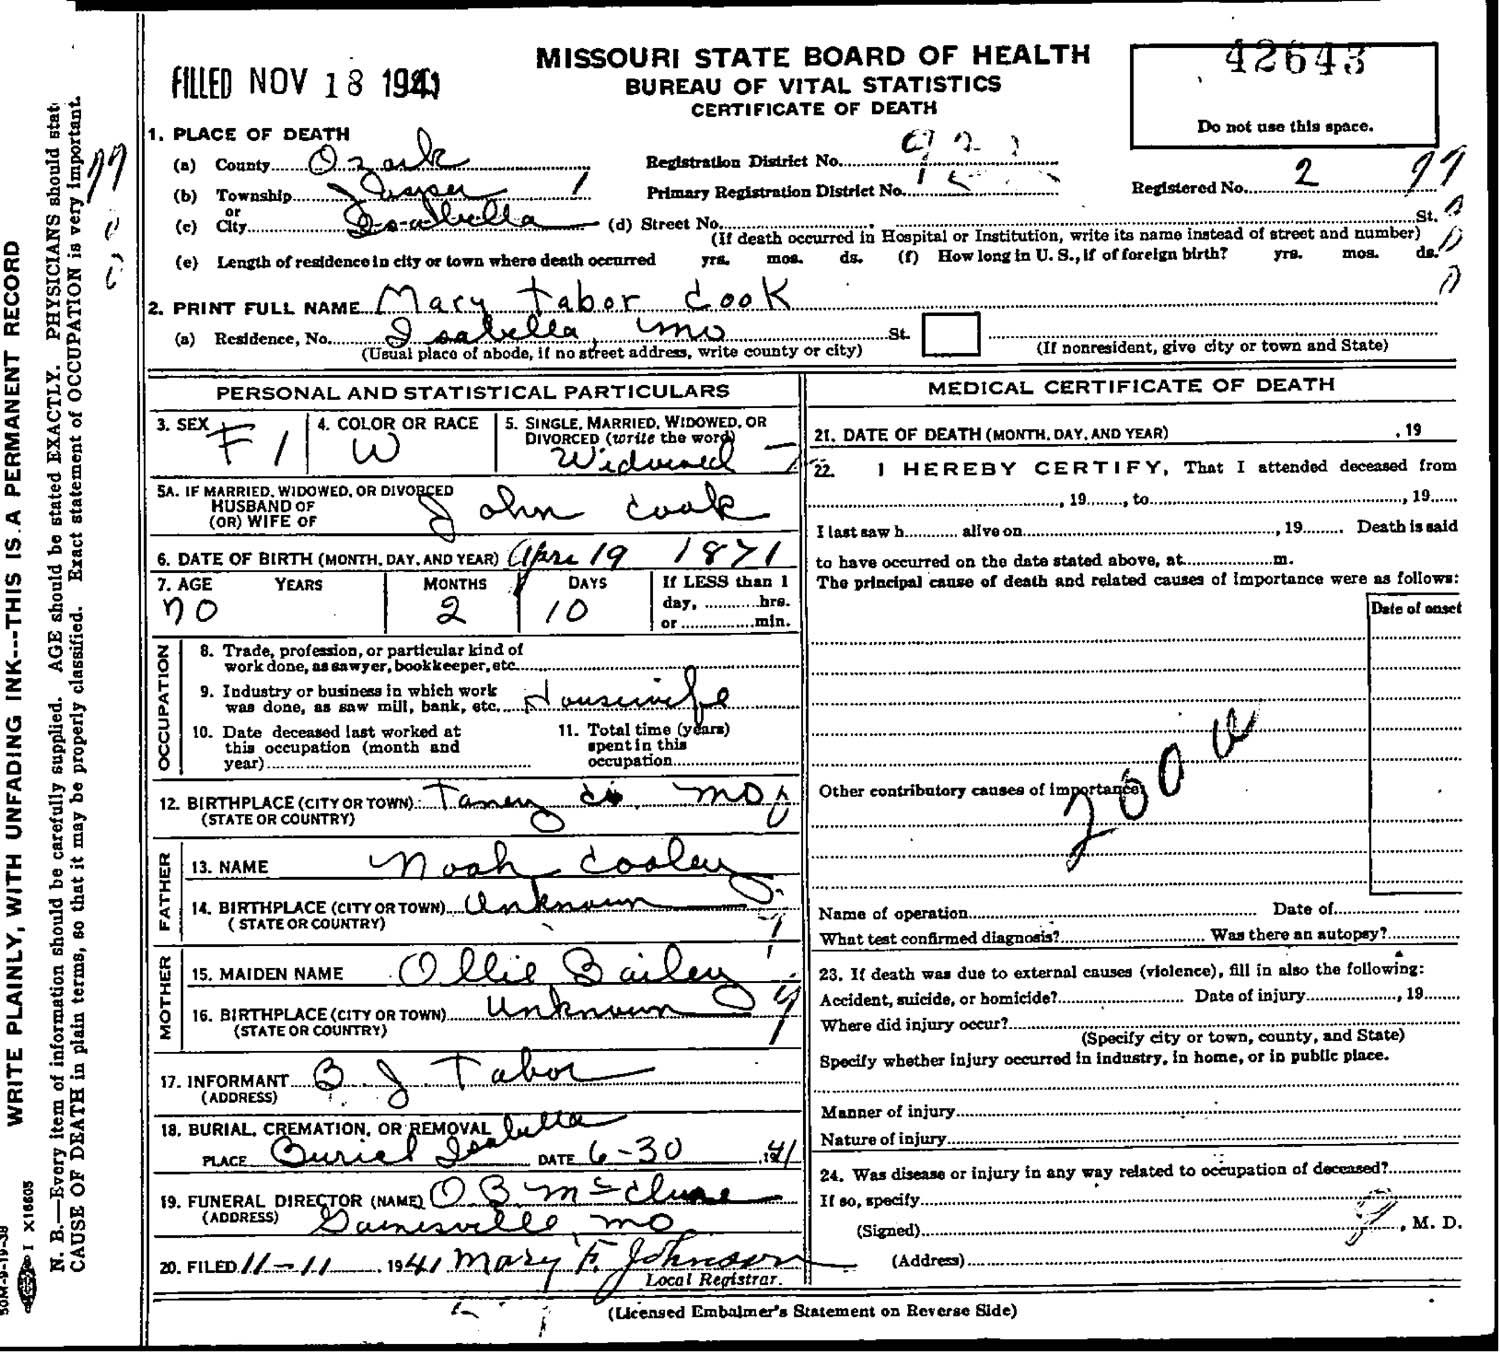 FILLED NOV 18 1941
MISSOURI STATE BOARD OF HEALTH
BUREAU OF VITAL STATISTICS
CERTIFICATE OF DEATH
42643
Do not use this space.
1. PLACE OF DEATH
(a) County Ozark
Registration District No.
(b) Township Jasper 1
Primary Registration District No.
Registered No. 2 99
or
(c) City Isabella (d) Street No. St.
(If death occurred in Hospital or Institution, write its name instead of street and number)
(e) Length of residence in city or town where death occurred yrs. mos. ds. (f) How long in U. S., if of foreign birth? yrs. mos. ds.
2. PRINT FULL NAME Mary Tabor Cook
(a) Residence, No. Isabella, Mo St.
(Usual place of abode, if no street address, write county or city) (If nonresident, give city or town and State)
PERSONAL AND STATISTICAL PARTICULARS
3. SEX F 1
4. COLOR OR RACE W
5. SINGLE, MARRIED, WIDOWED, OR
DIVORCED (write the word)
Widowed
5A. IF MARRIED, WIDOWED, OR DIVORCED
HUSBAND OF
(OR) WIFE OF John Cook
6. DATE OF BIRTH (MONTH, DAY, AND YEAR) Apri 19 1871
7. AGE YEARS MONTHS DAYS If LESS than 1
day, hrs.
or min.
70 2 10
OCCUPATION
8. Trade, profession, or particular kind of
work done, as sawyer, bookkeeper, etc.
9. Industry or business in which work
was done, as saw mill, bank, etc. Housewife
10. Date deceased last worked at
this occupation (month and
year)
11. Total time (years)
spent in this
occupation
12. BIRTHPLACE (CITY OR TOWN) Taney Co, Mo
(STATE OR COUNTRY)
FATHER
13. NAME Noah Cooley
14. BIRTHPLACE (CITY OR TOWN) Unknown
(STATE OR COUNTRY)
MOTHER
15. MAIDEN NAME Ollie Bailey
16. BIRTHPLACE (CITY OR TOWN) Unknown
(STATE OR COUNTRY)
17. INFORMANT B. J. Tabor
(ADDRESS)
18. BURIAL, CREMATION, OR REMOVAL Isabella
PLACE Buriel Isabella DATE 6-30 1941
19. FUNERAL DIRECTOR (NAME) O B McClure
(ADDRESS) Gainesville, Mo
20. FILED 11-11, 1941 Mary F. Johnson
Local Registrar.
MEDICAL CERTIFICATE OF DEATH
21. DATE OF DEATH (MONTH, DAY, AND YEAR) , 19
22. I HEREBY CERTIFY, That I attended deceased from
, 19 , to , 19
I last saw h alive on , 19 Death is said
to have occurred on the date stated above, at m.
The principal cause of death and related causes of importance were as follows:
Date of onset
Other contributory causes of importance:
200
Name of operation Date of
What test confirmed diagnosis? Was there an autopsy?
23. If death was due to external causes (violence), fill in also the following:
Accident, suicide, or homicide? Date of injury , 19
Where did injury occur?
(Specify city or town, county, and State)
Specify whether injury occurred in industry, in home, or in public place.
Manner of injury
Nature of injury
24. Was disease or injury in any way related to occupation of deceased?
If so, specify
(Signed) , M. D.
(Address)
(Licensed Embalmer's Statement on Reverse Side)
WRITE PLAINLY, WITH UNFADING INK---THIS IS A PERMANENT RECORD
N. B.—Every item of information should be carefully supplied. AGE should be stated EXACTLY. PHYSICIANS should state
CAUSE OF DEATH in plain terms, so that it may be properly classified. Exact statement of OCCUPATION is very important.
50M-9-19-38
I X16605